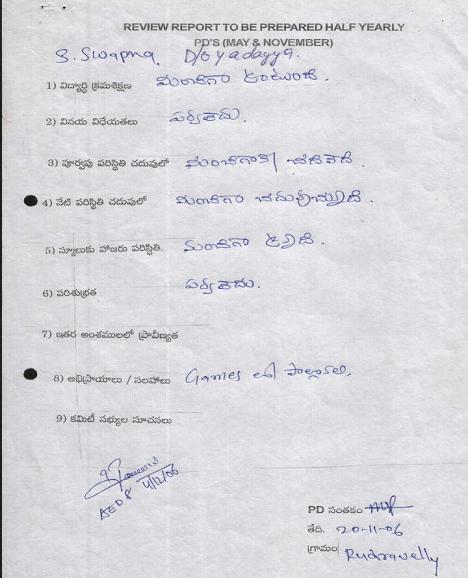 REVIEW REPORT TO BE PREPARED HALF YEARLY
PD'S (MAY & NOVEMBER)
S. Swapna. D/o yadayya.
1) విద్యార్థి క్రమశిక్షణ మంచిగా ఉంటుంది.
2) వినయ విధేయతలు పర్వలేదు.
3) పూర్వపు పరిస్థితి చదువులో మంచిగానే
4) నేటి పరిస్థితి చదువులో మంచిగా చదువుచున్నది.
5) స్కూలుకు హాజరు పరిస్థితి. మంచిగా ఉన్నది.
6) పరిశుభ్రత పర్వలేదు.
7) ఇతర అంశములలో ప్రావీణ్యత
8) అభిప్రాయాలు / సలహాలు Games లో పాల్గొనాలి.
9) కమిటీ సభ్యుల సూచనలు
4/12/06
PD సంతకం
తేది. 20-11-06
గ్రామం Rudravelly